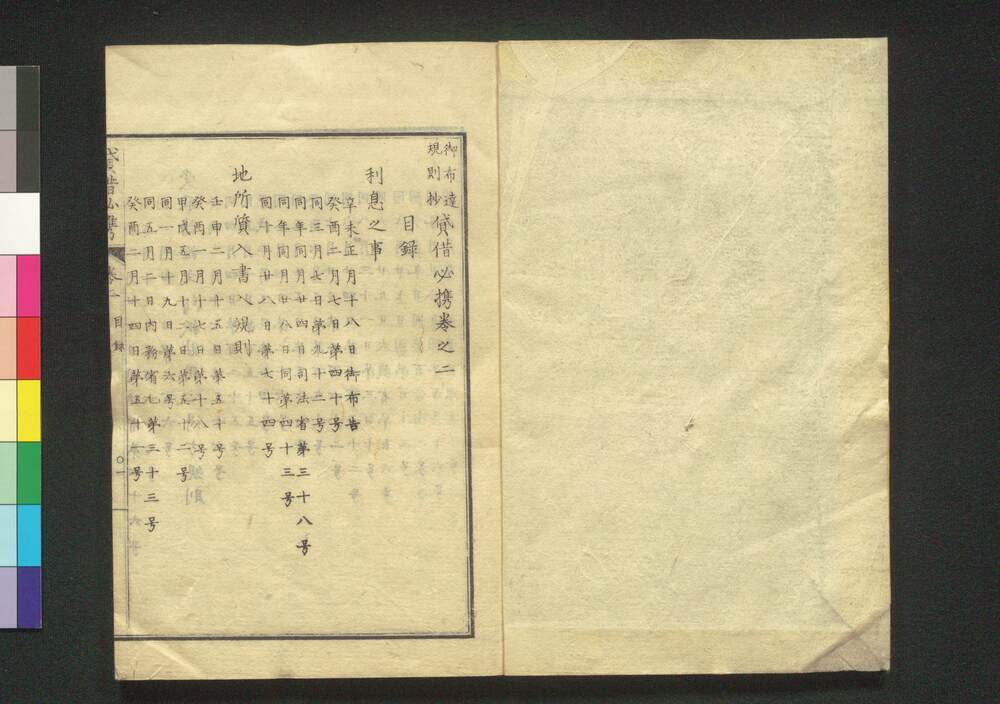 御布達
規則抄
貸借必携巻之二
目録
利息之事
辛未正月十八日御布告
癸酉二月七日第四十号
同三月七日第九十二号
同年同月廿四日司法省第三十八号
同年同月廿八日同第四十三号
同十月廿八日第七十四号
地所質入書入規則
壬申二月十五日第五十号
癸酉一月十七日第十八号
甲戌五月十二日第五十二号
同一月十九日第六号
同五月二日内務省乙第三十三号
癸酉二月十四日第五十一号
貸借必携
巻二
目録
〇一